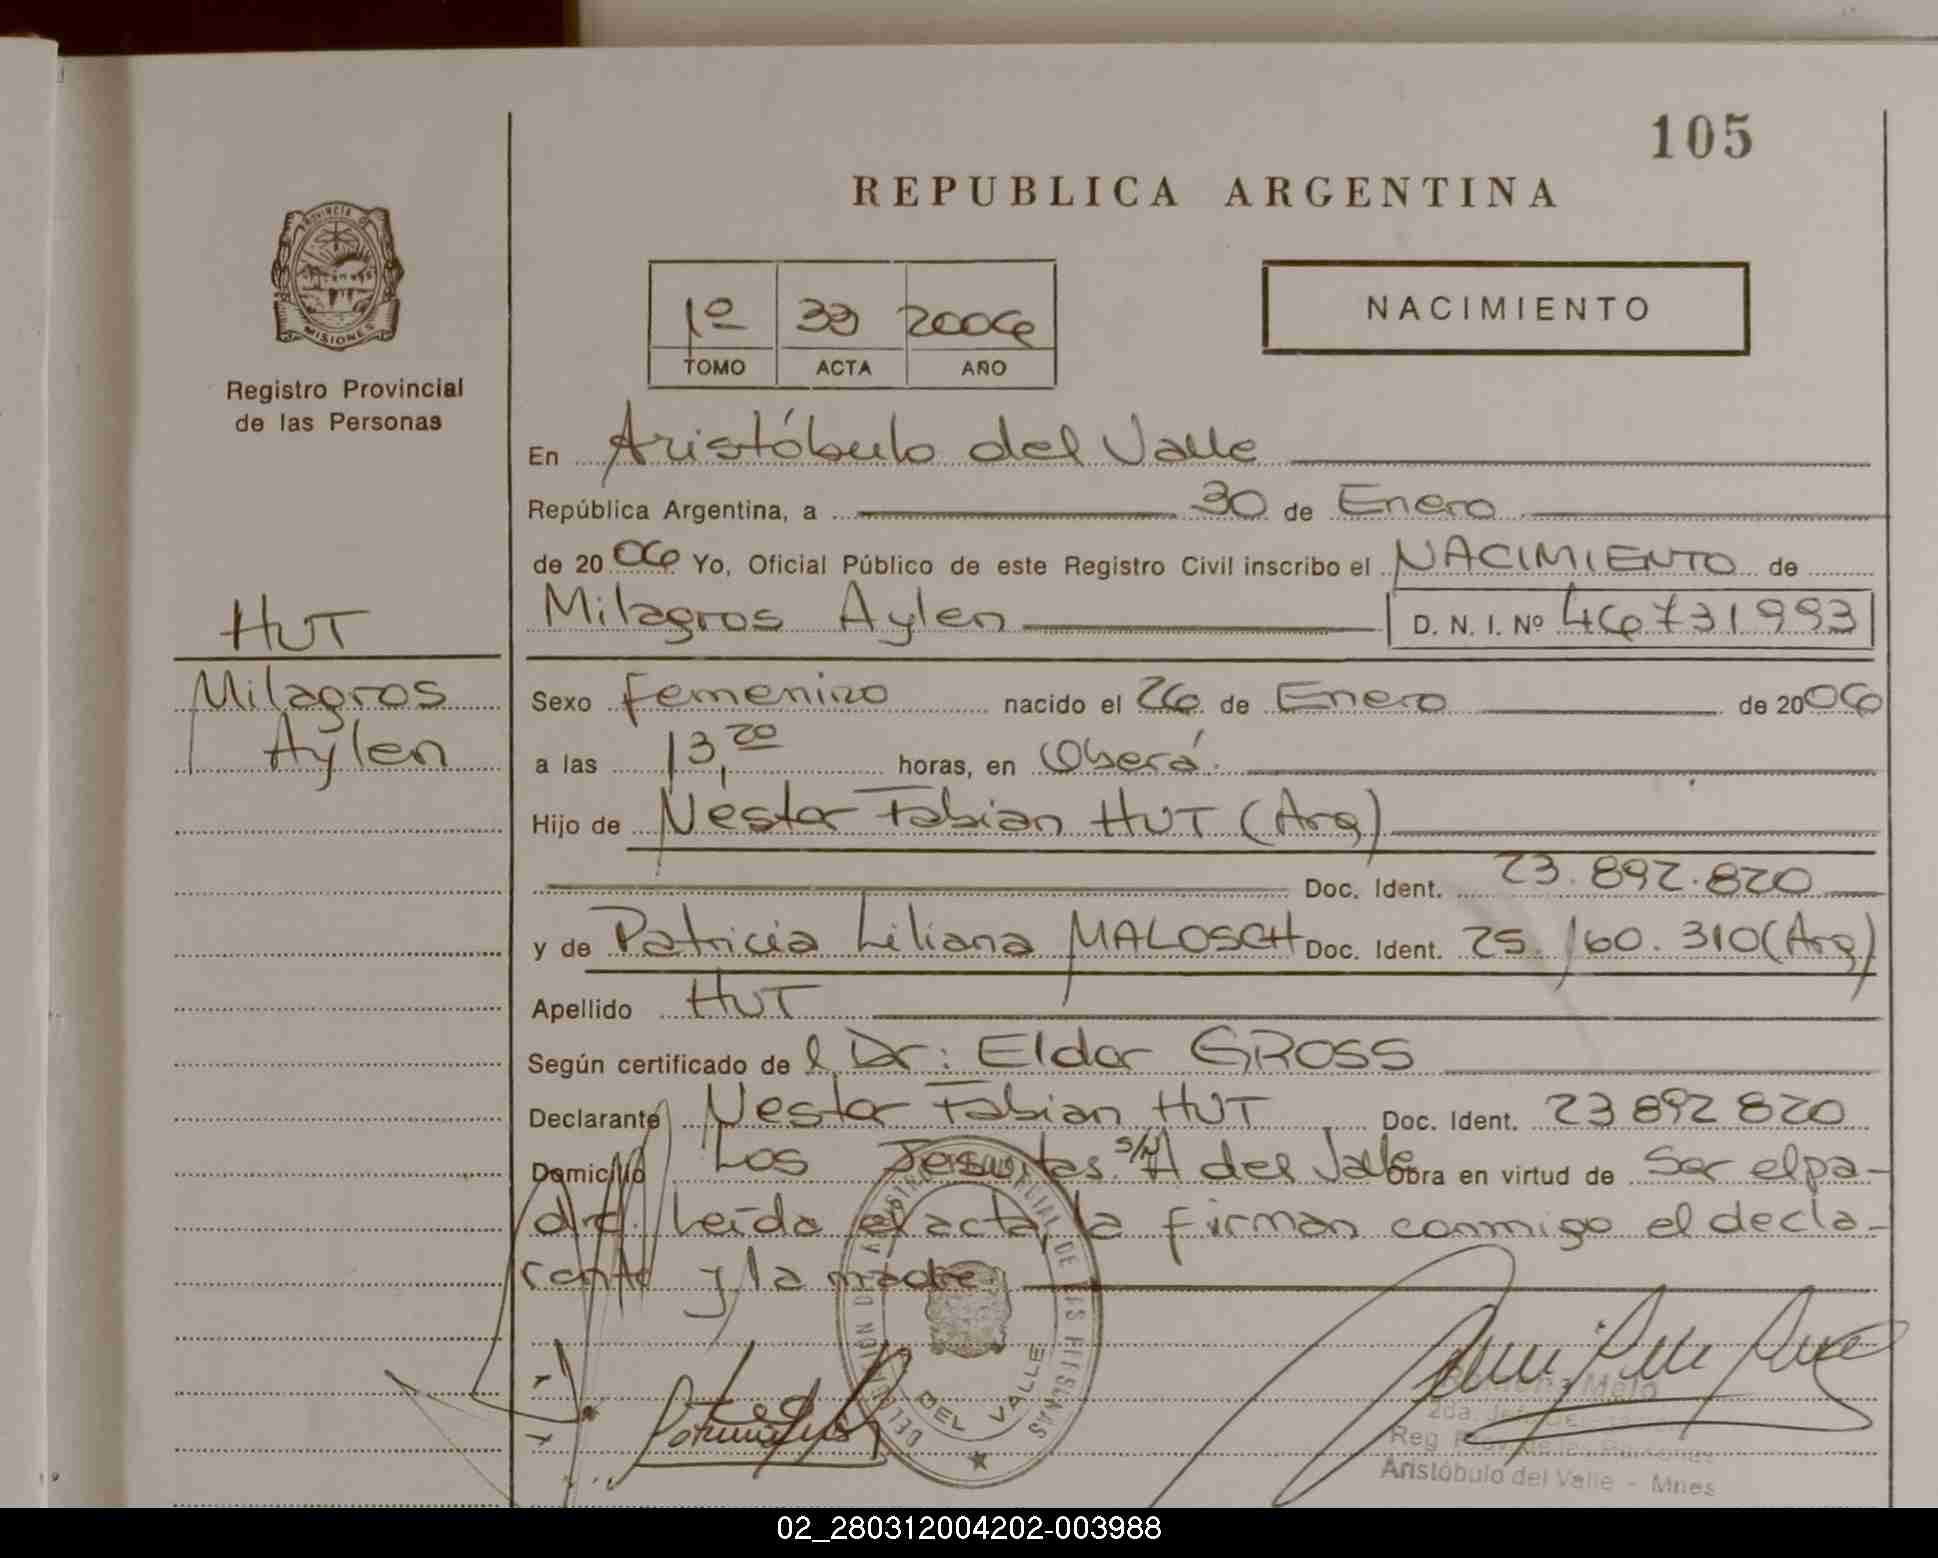 105
REPUBLICA ARGENTINA
PROVINCIA DE
MISIONES
Registro Provincial
de las Personas
1º 39 2006
TOMO ACTA AÑO
NACIMIENTO
En Aristóbulo del Valle
República Argentina, a 30 de Enero
de 2006 Yo, Oficial Público de este Registro Civil inscribo el NACIMIENTO de
Milagros Aylen D. N. I. Nº 46731993
HUT
Milagros
Aylen
Sexo femenino nacido el 26 de Enero de 2006
a las 13,20 horas, en Oberá.
Hijo de Néstor Fabian HUT (Arg)
Doc. Ident. 23.892.820
y de Patricia Liliana MALOSCH Doc. Ident. 25.160.310 (Arg)
Apellido HUT
Según certificado de l Dr: Eldor GROSS
Declarante Nestor Fabian HUT Doc. Ident. 23892820
Domicilio Los Jesuitas s/n A del Valle Obra en virtud de Ser el pa-
dre. Leída el acta, la firman conmigo el decla-
rante y la madre
DEL VALLE
Melo
2da.
Reg. Prov. de las Personas
Aristóbulo del Valle - Mnes
02_280312004202-003988